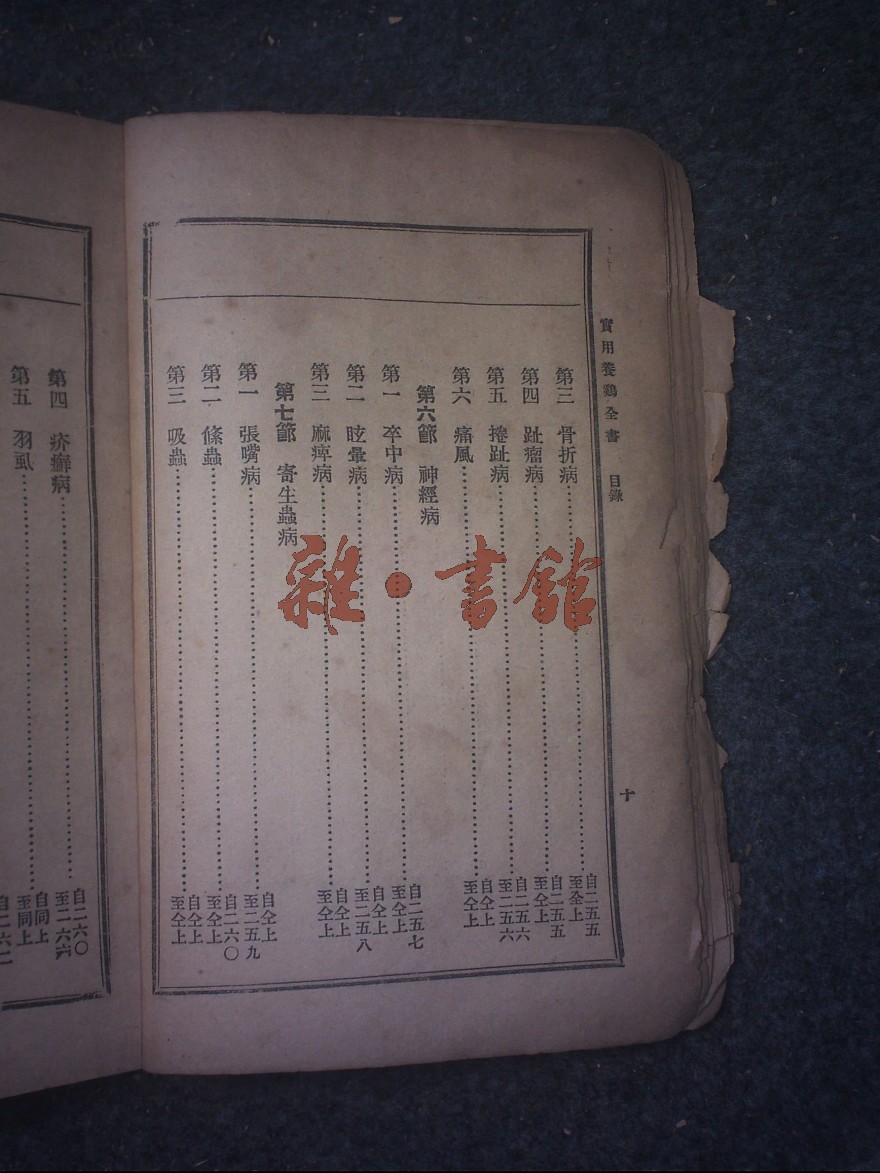 實用養鷄全書 目錄 十
第三 骨折病……自二五五至仝上
第四 趾瘤病……自二五五至仝上
第五 捲趾病……自二五六至二五六
第六 痛風……自仝上至仝上
第六節 神經病
第一 卒中病……自二五七至仝上
第二 眩暈病……自仝上至二五八
第三 麻痺病……自仝上至仝上
第七節 寄生蟲病
第一 張嘴病……自仝上至二五九
第二 條蟲……自二六〇至仝上
第三 吸蟲……自仝上至仝上
第四 疥癬病……自二六〇至二六六
第五 羽虱……自同上至同上
雜·書館